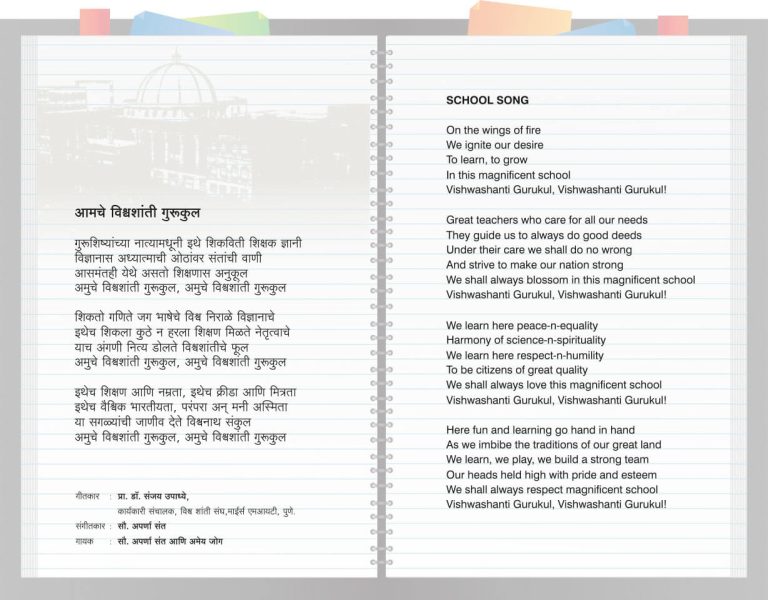 आमचे विश्वशांती गुरूकुल
गुरूशिष्यांच्या नात्यामधूनी इथे शिकविती शिक्षक ज्ञानी
विज्ञानास अध्यात्माची ओठांवर संतांची वाणी
आसमंतही येथे असतो शिक्षणास अनुकूल
अमुचे विश्वशांती गुरूकुल, अमुचे विश्वशांती गुरूकुल!
शिकतो गणिते जग भाषेचे विश्व निराळे विज्ञानाचे
इथेच शिकला कुठे न हरला शिक्षण मिळते नेतृत्वाचे
याच अंगणी नित्य डोलते विश्वशांतीचे फूल
अमुचे विश्वशांती गुरूकुल, अमुचे विश्वशांती गुरूकुल!
इथेच शिक्षण आणि नम्रता, इथेच क्रीडा आणि मित्रता
इथेच वैश्विक भारतीयता, परंपरा अन् मनी अस्मिता
या सगळ्यांची जाणीव देते विश्वनाथ संकुल
अमुचे विश्वशांती गुरूकुल, अमुचे विश्वशांती गुरूकुल!
गीतकार : प्रा. डॉ. संजय उपाध्ये,
कार्यकारी संचालक, विश्व शांती संघ,माईर्स एमआयटी, पुणे.
संगीतकार : सौ. अपर्णा संत
गायक : सौ. अपर्णा संत आणि अमेय जोग
SCHOOL SONG
On the wings of fire
We ignite our desire
To learn, to grow
In this magnificent school
Vishwashanti Gurukul, Vishwashanti Gurukul!
Great teachers who care for all our needs
They guide us to always do good deeds
Under their care we shall do no wrong
And strive to make our nation strong
We shall always blossom in this magnificent school
Vishwashanti Gurukul, Vishwashanti Gurukul!
We learn here peace-n-equality
Harmony of science-n-spirituality
We learn here respect-n-humility
To be citizens of great quality
We shall always love this magnificent school
Vishwashanti Gurukul, Vishwashanti Gurukul!
Here fun and learning go hand in hand
As we imbibe the traditions of our great land
We learn, we play, we build a strong team
Our heads held high with pride and esteem
We shall always respect magnificent school
Vishwashanti Gurukul, Vishwashanti Gurukul!